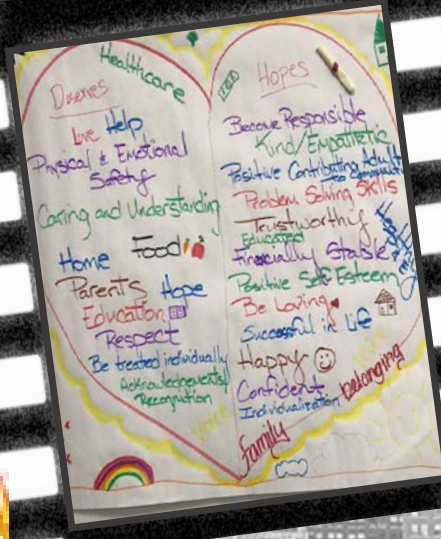 Healthcare
Deserves
Love Help
Physical & Emotional
Safety
Caring and Understanding
Food
Home
Parents Hope
Education
Respect
Be treated individually
Acknowledgements/
Recognition
Hopes
Become Responsible
Kind/Empathetic
Positive Contributing Adult
to community
Problem Solving Skills
Trustworthy
Educated
Financially Stable
Positive Self Esteem
Be Loving
Successful in Life
Happy
Confident
Individualization
belonging
family